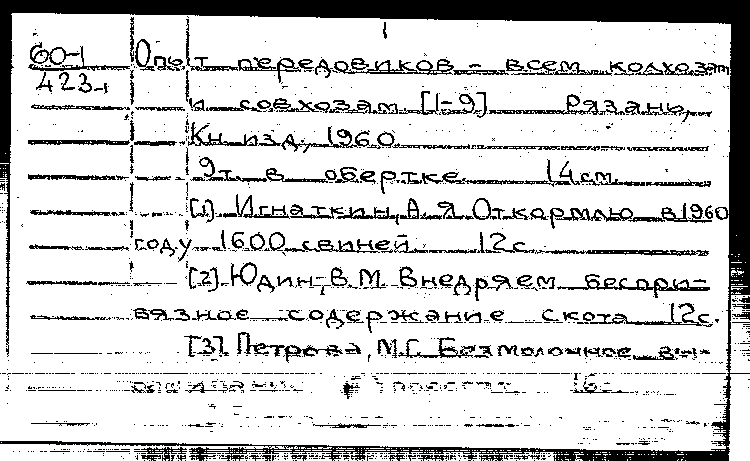 1
60-1 Опыт передовиков - всем колхозам
423-1 и совхозам. [1-9] Рязань,
Кн. изд., 1960.
9т. в обертке 14см.
[1]. Игнаткин, А. Я. Откормлю в 1960
году 1600 свиней 12с.
[2]. Юдин, В. М. Внедряем беспри-
вязное содержание скота 12с.
[3]. Петрова, М.Г. Безмолочное вы-
поросят 16с.